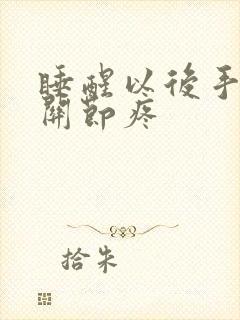 睡醒以後手
関節疼
拾朱